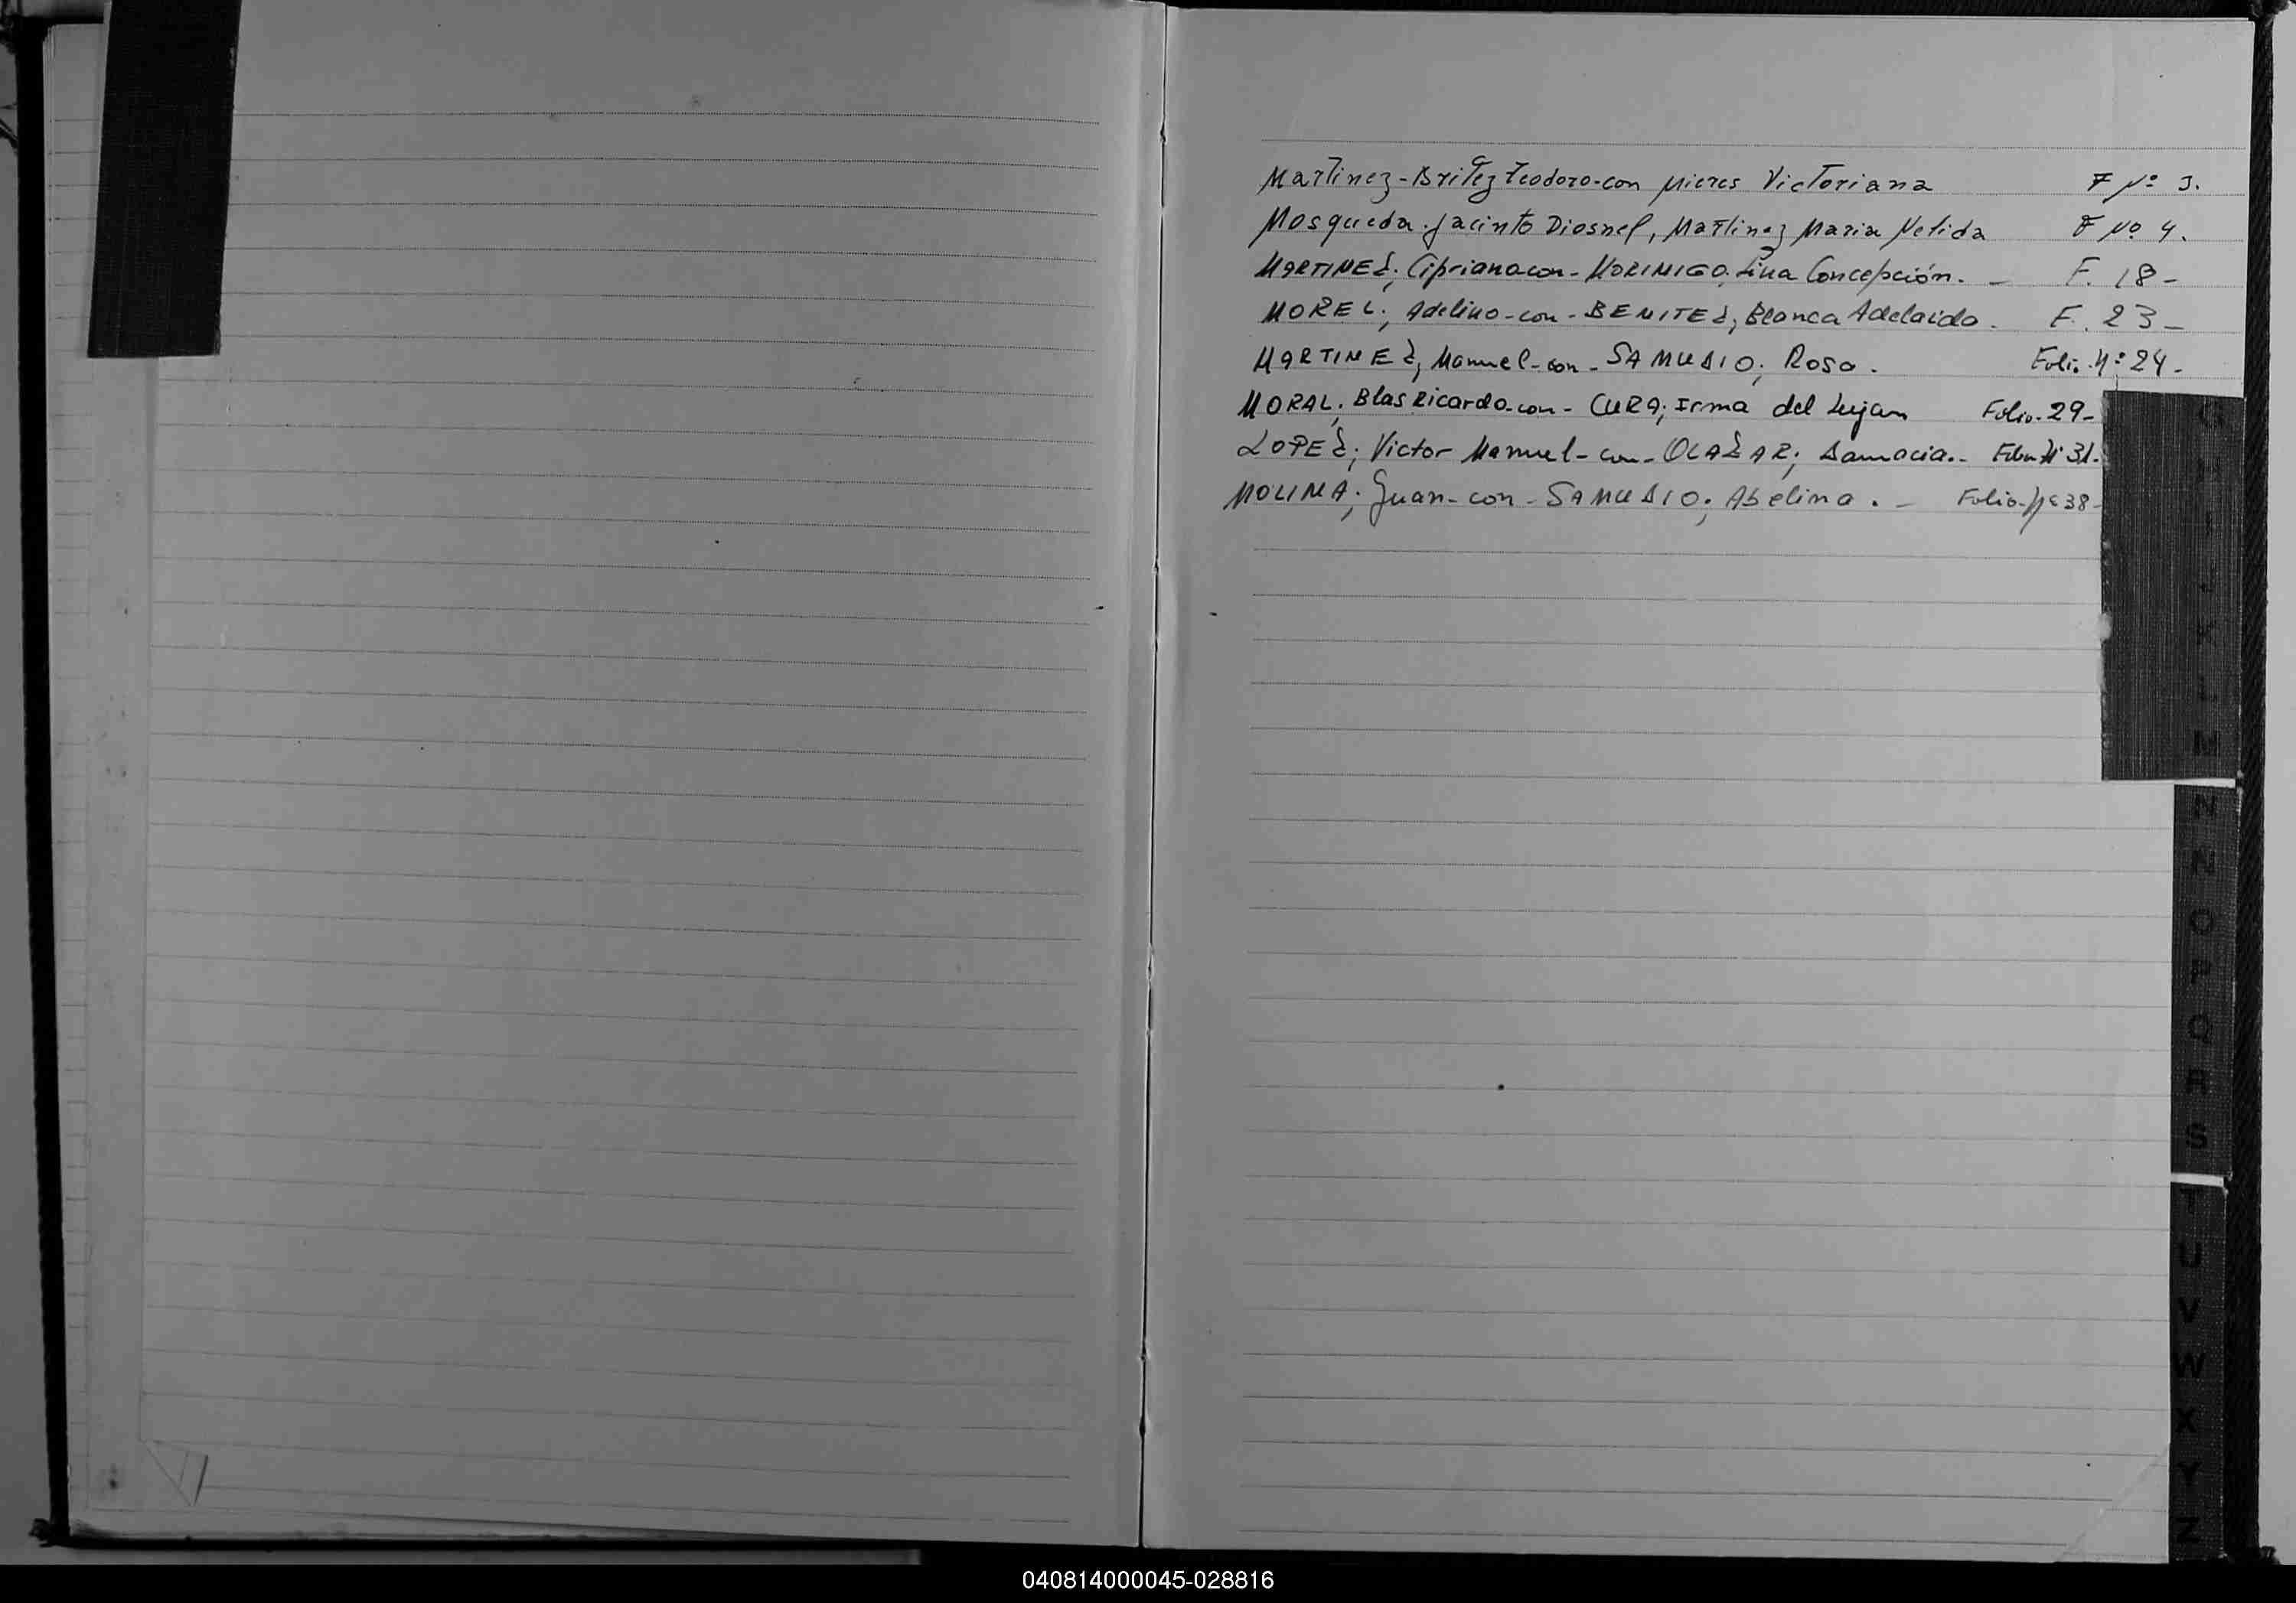 Martinez-Britez Teodoro-con Mieres Victoriana F Nº 3.
Mosqueda. Jacinto Diosnel, Martinez Maria Nelida F Nº 4.
MARTINEZ; Cipriano con - MORINIGO. Lina Concepción. - F. 18 -
MOREL; Adelino - con - BENITEZ; Blanca Adelaida. F. 23 -
MARTINEZ, Manuel - con - SAMUDIO; Rosa. Folio. Nº 24 -
MORAL; Blas Ricardo - con - CURA; Irma del Lujan Folio - 29 -
LOPEZ; Victor Manuel - con - OLAZAR; Damacia. - Folio Nº 31 -
MOLINA; Juan - con - SAMUDIO; Abelina. - Folio - Nº 38 -
G
H
I
J
K
L
M
N
Ñ
O
P
Q
R
S
T
U
V
W
X
Y
Z
040814000045-028816